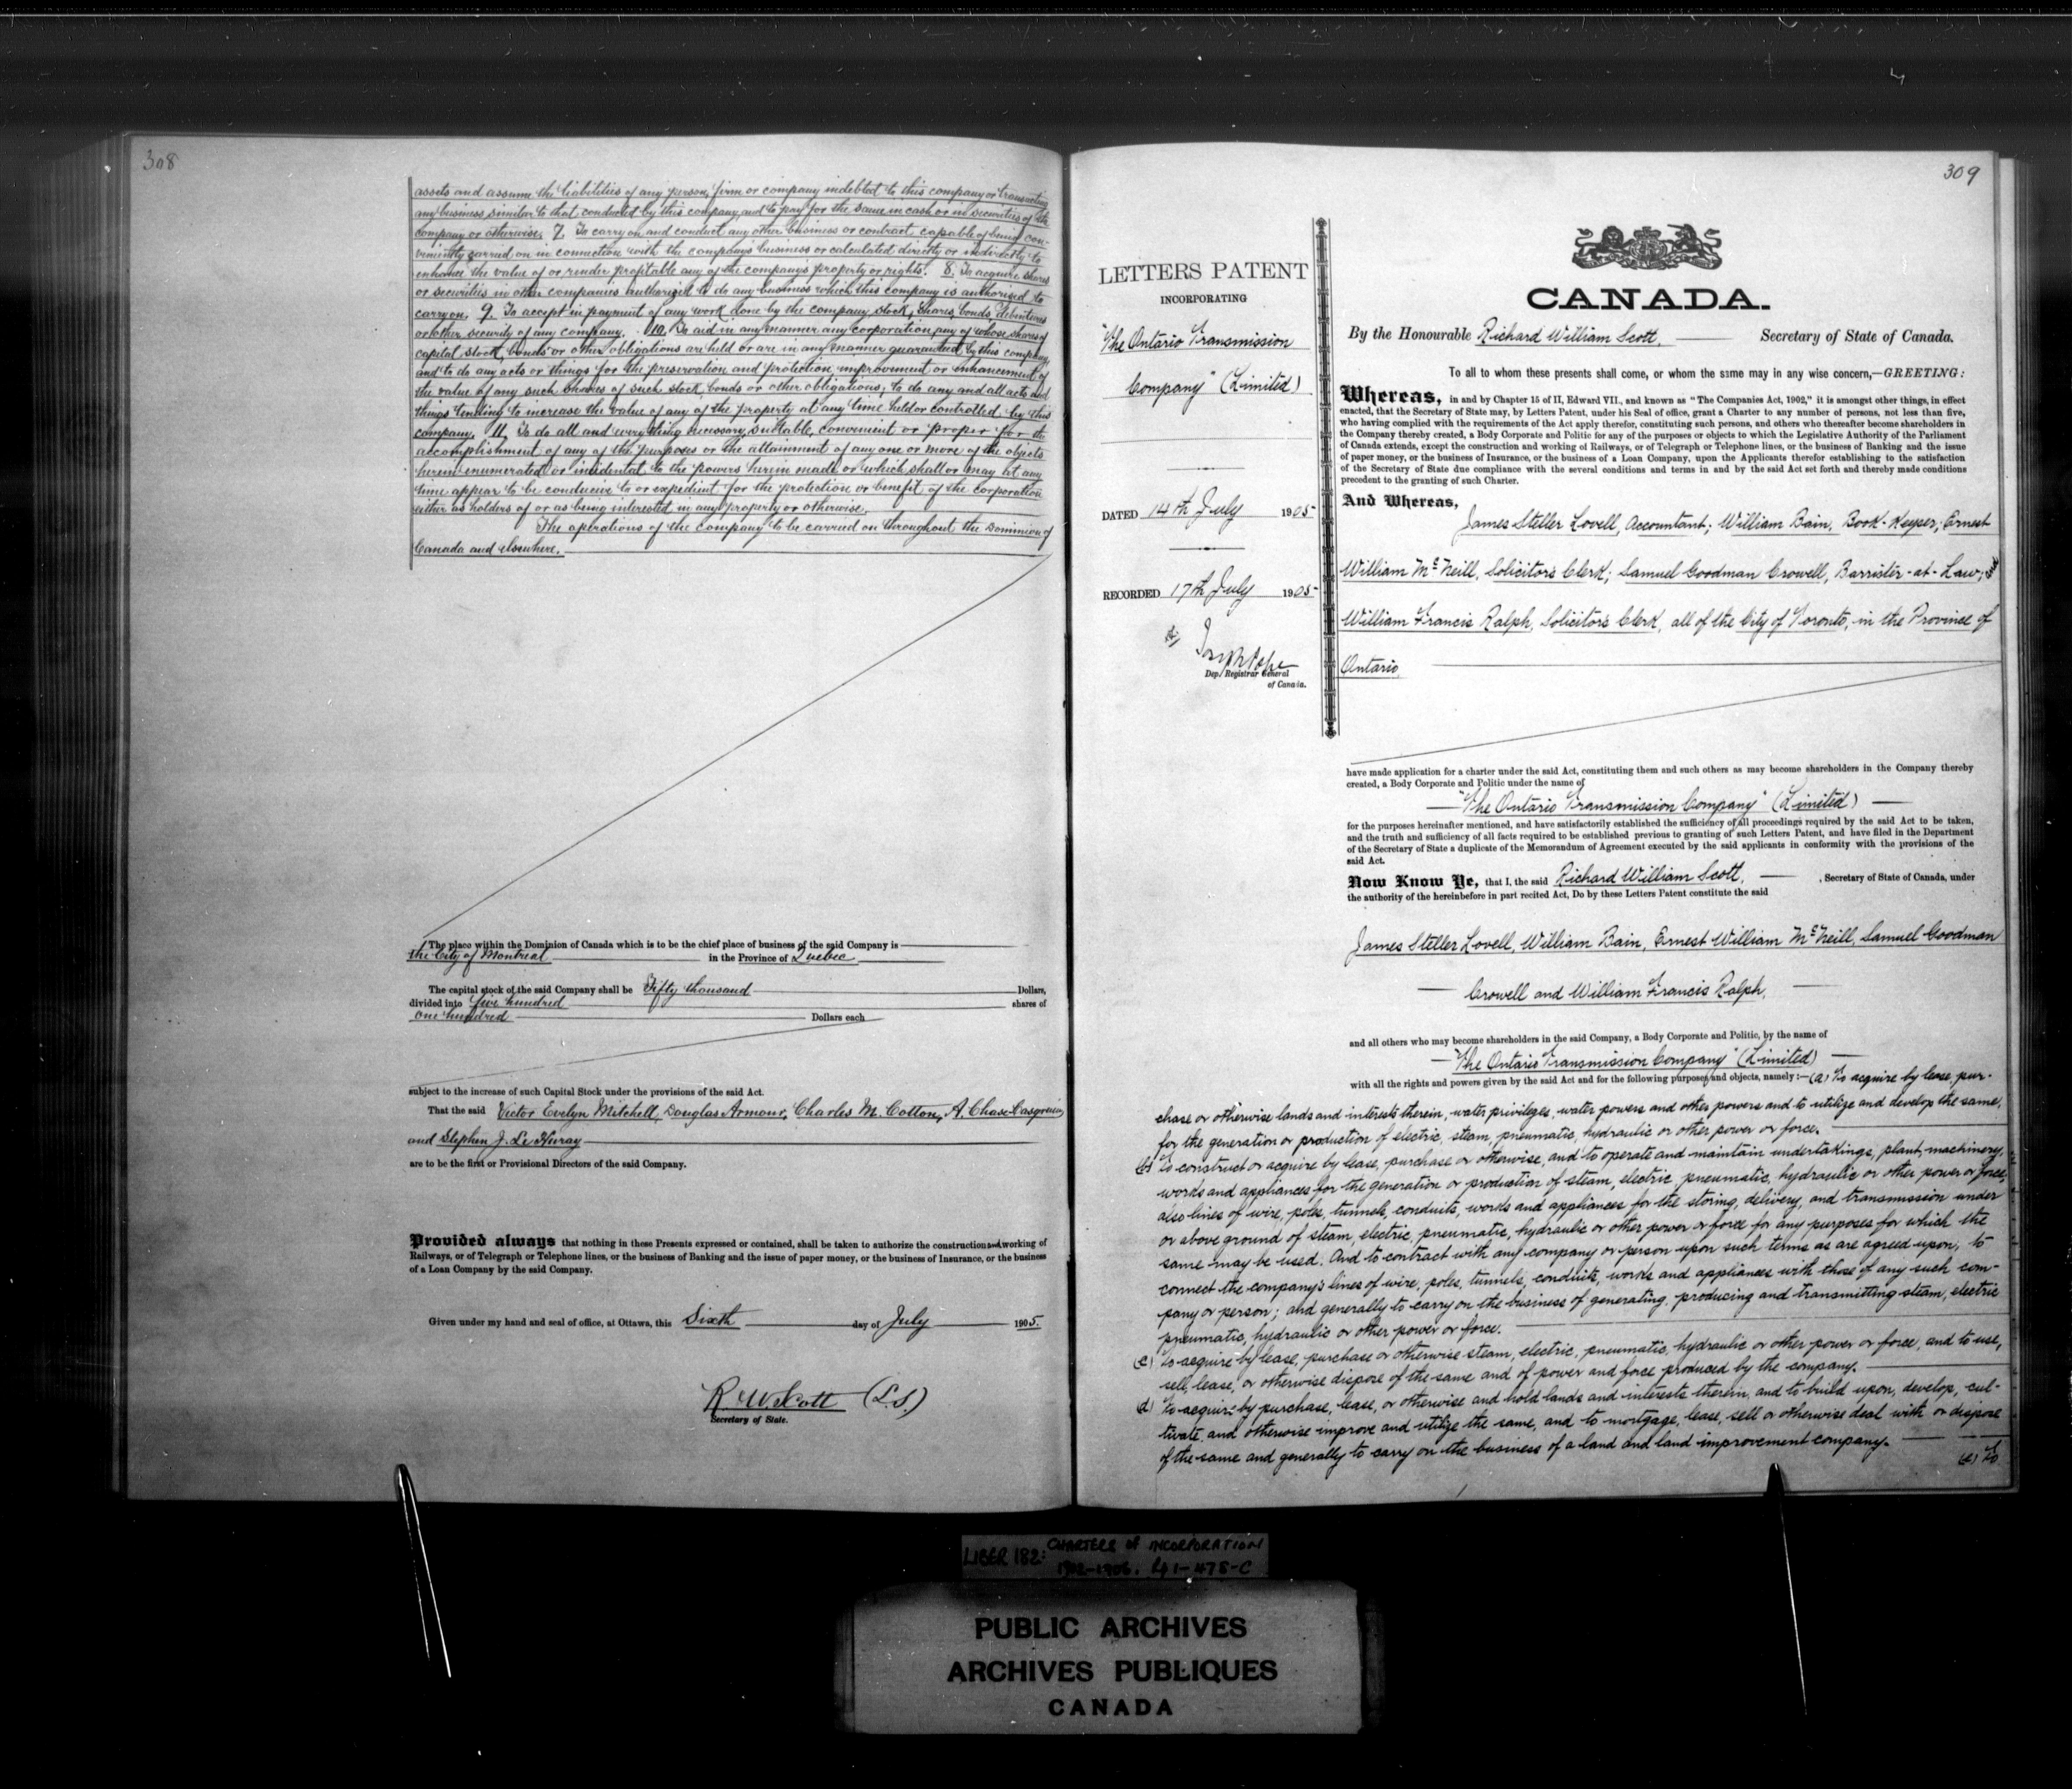 308
assets and assume the liabilities of any person, firm or company indebted to this company or transacting
any business similar to that conducted by this company, and to pay for the same in cash or in securities of the
company or otherwise. 7. To carry on and conduct any other business or contract capable of being con-
veniently carried on in connection with the company's business or calculated directly or indirectly to
enhance the value of or render profitable any of the company's property or rights. 8. To acquire shares
or securities in other companies authorized to do any business which this company is authorised to
carry on. 9. To accept in payment of any work done by the company stock, shares, bonds, debentures
or other security of any company. 10. To aid in any manner any corporation, any of whose shares of
capital stock, bonds or other obligations are held or are in any manner guaranteed by this company,
and to do any acts or things for the preservation and protection, improvement or enhancement of
the value of any such shares of such stock, bonds or other obligations; to do any and all acts and
things tending to increase the value of any of the property at any time held or controlled by this
company. 11. To do all and everything necessary, suitable, convenient or proper for the
accomplishment of any of the purposes or the attainment of any one or more of the objects
herein enumerated or incidental to the powers herein made or which shall or may at any
time appear to be conducive to or expedient for the protection or benefit of the corporation
either as holders of or as being interested in any property or otherwise.
The operations of the Company to be carried on throughout the Dominion of
Canada and elsewhere.
The place within the Dominion of Canada which is to be the chief place of business of the said Company is
the City of Montreal in the Province of Quebec
The capital stock of the said Company shall be Fifty thousand Dollars,
divided into five hundred shares of
one hundred Dollars each
subject to the increase of such Capital Stock under the provisions of the said Act.
That the said Victor Evelyn Mitchell, Douglas Armour, Charles M. Cotton, A. Chase-Casgrain,
and Stephen J. Le Huray
are to be the first or Provisional Directors of the said Company.
Provided always that nothing in these Presents expressed or contained, shall be taken to authorize the construction and working of
Railways, or of Telegraph or Telephone lines, or the business of Banking and the issue of paper money, or the business of Insurance, or the business
of a Loan Company by the said Company.
Given under my hand and seal of office, at Ottawa, this Sixth day of July 1905.
R. W. Scott (L.S.)
Secretary of State.
309
LETTERS PATENT
INCORPORATING
"The Ontario Transmission
Company" (Limited)
DATED 14th July 1905
RECORDED 17th July 1905
Joseph Pope
Dep. Registrar General
of Canada.
CANADA.
By the Honourable Richard William Scott, Secretary of State of Canada.
To all to whom these presents shall come, or whom the same may in any wise concern,—GREETING:
Whereas, in and by Chapter 15 of II, Edward VII., and known as "The Companies Act, 1902," it is amongst other things, in effect
enacted, that the Secretary of State may, by Letters Patent, under his Seal of office, grant a Charter to any number of persons, not less than five,
who having complied with the requirements of the Act apply therefor, constituting such persons, and others who thereafter become shareholders in
the Company thereby created, a Body Corporate and Politic for any of the purposes or objects to which the Legislative Authority of the Parliament
of Canada extends, except the construction and working of Railways, or of Telegraph or Telephone lines, or the business of Banking and the issue
of paper money, or the business of Insurance, or the business of a Loan Company, upon the Applicants therefor establishing to the satisfaction
of the Secretary of State due compliance with the several conditions and terms in and by the said Act set forth and thereby made conditions
precedent to the granting of such Charter.
And Whereas,
James Steller Lovell, Accountant; William Bain, Book-Keeper; Ernest
William McNeill, Solicitor's Clerk; Samuel Goodman Crowell, Barrister-at-Law; and
William Francis Ralph, Solicitor's Clerk, all of the City of Toronto, in the Province of
Ontario,
have made application for a charter under the said Act, constituting them and such others as may become shareholders in the Company thereby
created, a Body Corporate and Politic under the name of
"The Ontario Transmission Company" (Limited)
for the purposes hereinafter mentioned, and have satisfactorily established the sufficiency of all proceedings required by the said Act to be taken,
and the truth and sufficiency of all facts required to be established previous to granting of such Letters Patent, and have filed in the Department
of the Secretary of State a duplicate of the Memorandum of Agreement executed by the said applicants in conformity with the provisions of the
said Act.
Now Know Ye, that I, the said Richard William Scott, Secretary of State of Canada, under
the authority of the hereinbefore in part recited Act, Do by these Letters Patent constitute the said
James Steller Lovell, William Bain, Ernest William McNeill, Samuel Goodman
Crowell and William Francis Ralph,
and all others who may become shareholders in the said Company, a Body Corporate and Politic, by the name of
"The Ontario Transmission Company" (Limited)
with all the rights and powers given by the said Act and for the following purposes and objects, namely:—(a) To acquire by lease, pur-
chase or otherwise lands and interests therein, water privileges, water powers and other powers and to utilize and develop the same,
for the generation or production of electric, steam, pneumatic, hydraulic or other power or force.
(b) To construct or acquire by lease, purchase or otherwise, and to operate and maintain undertakings, plant, machinery,
works and appliances for the generation or production of steam, electric, pneumatic, hydraulic or other power or force,
also lines of wire, poles, tunnels, conduits, works and appliances for the storing, delivery, and transmission under
or above ground of steam, electric, pneumatic, hydraulic or other power or force for any purposes for which the
same may be used. And to contract with any company or person upon such terms as are agreed upon, to
connect the company's lines of wire, poles, tunnels, conduits, works and appliances with those of any such com-
pany or person; and generally to carry on the business of generating, producing and transmitting steam, electric
pneumatic, hydraulic or other power or force.
(c) To acquire by lease, purchase or otherwise steam, electric, pneumatic, hydraulic or other power or force, and to use,
sell, lease, or otherwise dispose of the same and of power and force produced by the company.
(d) To acquire by purchase, lease, or otherwise and hold lands and interests therein, and to build upon, develop, cul-
tivate, and otherwise improve and utilize the same, and to mortgage, lease, sell or otherwise deal with or dispose
of the same and generally to carry on the business of a land and land improvement company.
(e) To
LIBER 182: CHARTERS of INCORPORATION
PUBLIC ARCHIVES
ARCHIVES PUBLIQUES
CANADA